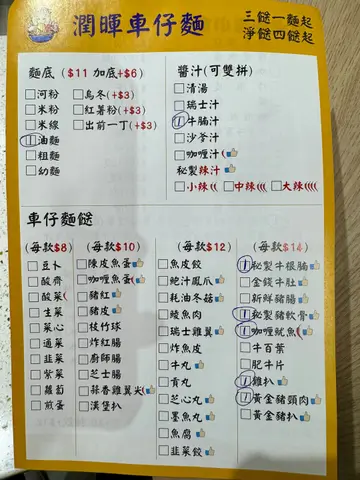 潤暉車仔麵
三餸一麵起
淨餸四餸起
麵底 ($11 加底+$6)
河粉
米粉
米線
油麵
粗麵
幼麵
烏冬(+$3)
紅薯粉(+$3)
出前一丁(+$3)
醬汁(可雙拼)
清湯
瑞士汁
牛腩汁
沙爹汁
咖喱汁(
秘製辣汁
小辣( 中辣((( 大辣((((
車仔麵餸
(每款$8)
豆卜
酸齊
酸菜(
生菜
菜心
通菜
韮菜
紫菜
蘿蔔
煎蛋
(每款$10)
陳皮魚蛋
咖喱魚蛋(
豬紅
豬皮
枝竹球
炸紅腸
廚師腸
芝士腸
蒜香雞翼尖(
漢堡扒
(每款$12)
魚皮餃
鮀汁鳳爪
耗油冬菇
鯪魚肉
瑞士雞翼
炸魚皮
牛丸
貢丸
芝心丸
墨魚丸
魚腐
韮菜餃
(每款$14)
秘製牛根腩
金錢牛肚
新鮮豬腸
秘製豬軟骨
咖喱魷魚(
牛百葉
肥牛片
雞扒
黃金豬頸肉
黃金豬扒